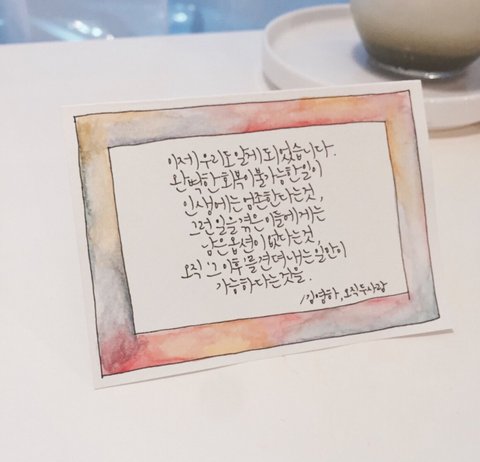 이제 우리도 알게 되었습니다.
완벽한 회복이 불가능한 일이
인생에는 엄존한다는 것,
그런 일을 겪은 이들에게는
남은 옵션이 없다는 것,
오직 '그 이후'를 견뎌내는 일만이
가능하다는 것을.
/김영하, 오직 두 사람